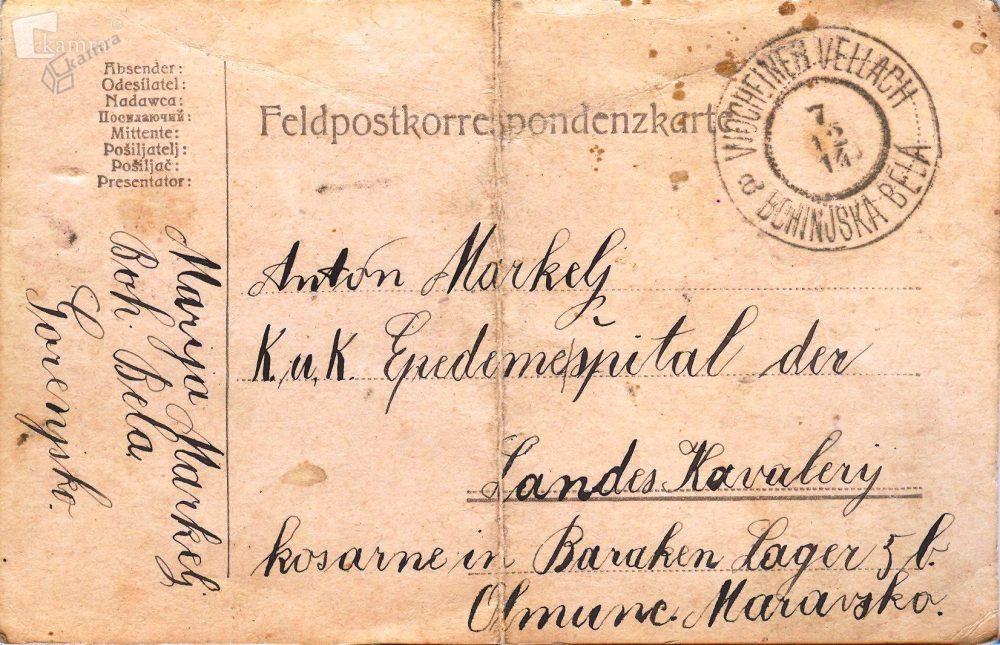 kamra
kamra
Absender:
Odesílatel:
Nadawca:
Посилаючий:
Mittente:
Pošiljatelj:
Pošiljač:
Presentator:
Feldpostkorrespondenzkarte
WOCHEINER VELLACH
7
12
14
BOHINJSKA BELA
Marija Markelj
Boh. Bela.
Gorenjsko.
Anton Markelj
K.u.K. Epedemešpital der
Landes Kavalerij
kosarne in Baraken Lager 5 b.
Olmunc. Maravsko.